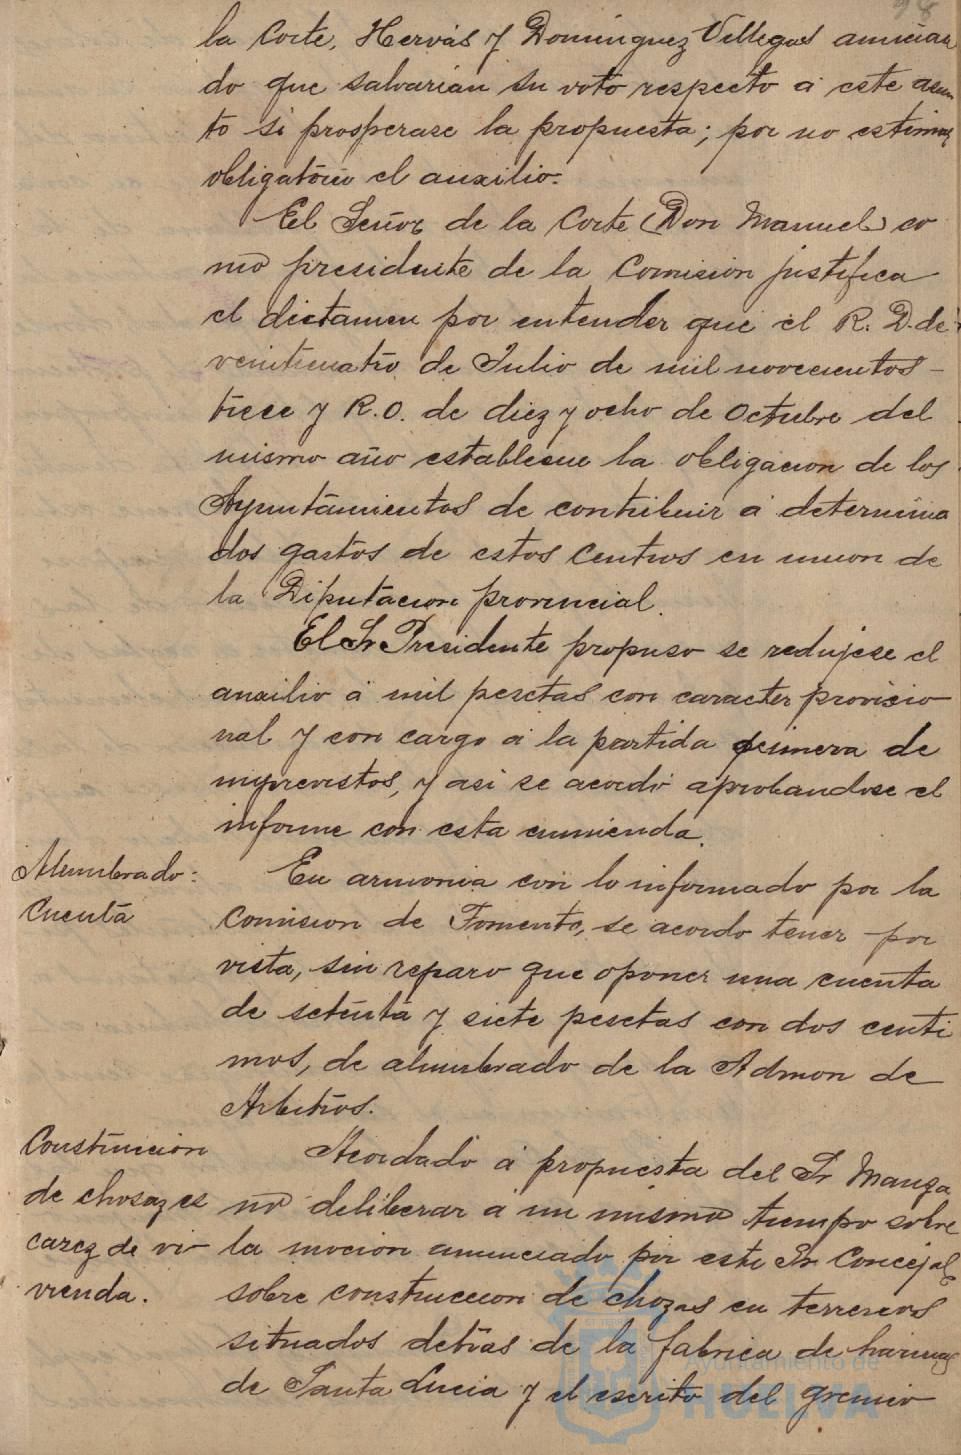 98
la Corte, Hervás y Dominguez Villegas anuncian
do que salvarian su voto respecto a este asun
to si prosperase la propuesta; por no estimar
obligatorio el auxilio.
El Señor de la Corte (Don Manuel) co
mo presidente de la Comision justifica
el dictamen por entender que el R. D. de
veinticuatro de Julio de mil novecientos
trece y R.O. de diez y ocho de Octubre del
mismo año establecen la obligacion de los
Ayuntamientos de contribuir a determina
dos gastos de estos Centros en union de
la Diputacion provincial.
El Sr Presidente propuso se redujese el
auxilio a mil pesetas con caracter provisio
nal y con cargo a la partida primera de
imprevistos, y asi se acordó aprobandose el
informe con esta enmienda.
Alumbrado:
Cuenta
En armonia con lo informado por la
Comision de Fomento, se acordo tener por
vista, sin reparo que oponer una cuenta
de setenta y siete pesetas con dos centi
mos, de alumbrado de la Admon de
Arbitros.
Construccion
de chosaz es
carez de vi-
vienda.
Acordado a propuesta del Sr Manza
no deliberar a un mismo tiempo sobre
la mocion anunciado por este Sr Concejal
sobre construccion de chozas en terrenos
situados detras de la fabrica de harinas
de Santa Lucia y el escrito del gremio
Ayuntamiento de
HUELVA